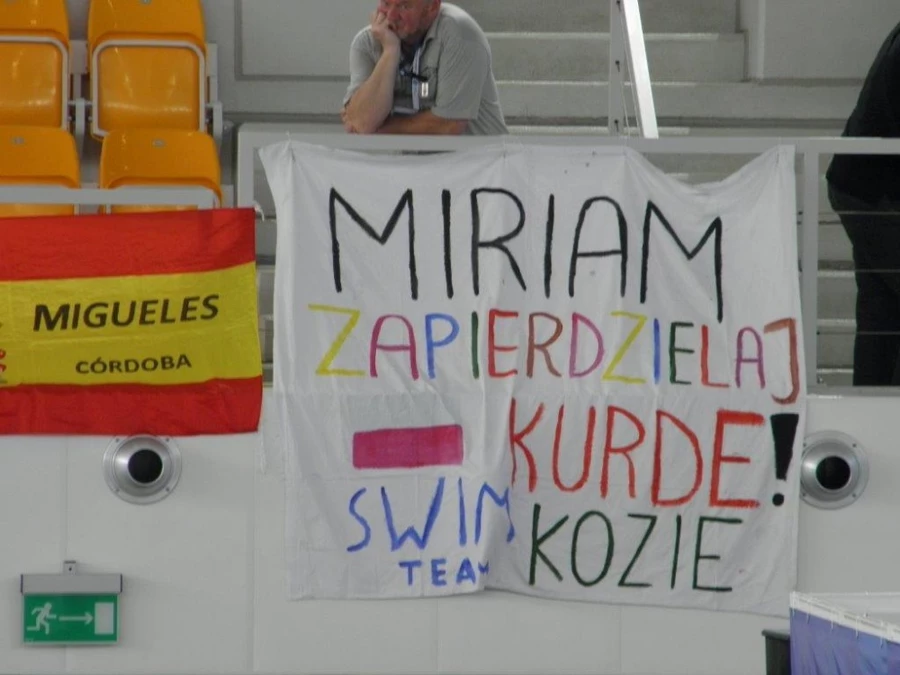 MIGUELES
CÓRDOBA
MIRIAM
ZAPIERDZIELAJ
KURDE!
SWIM
TEAM
KOZIE